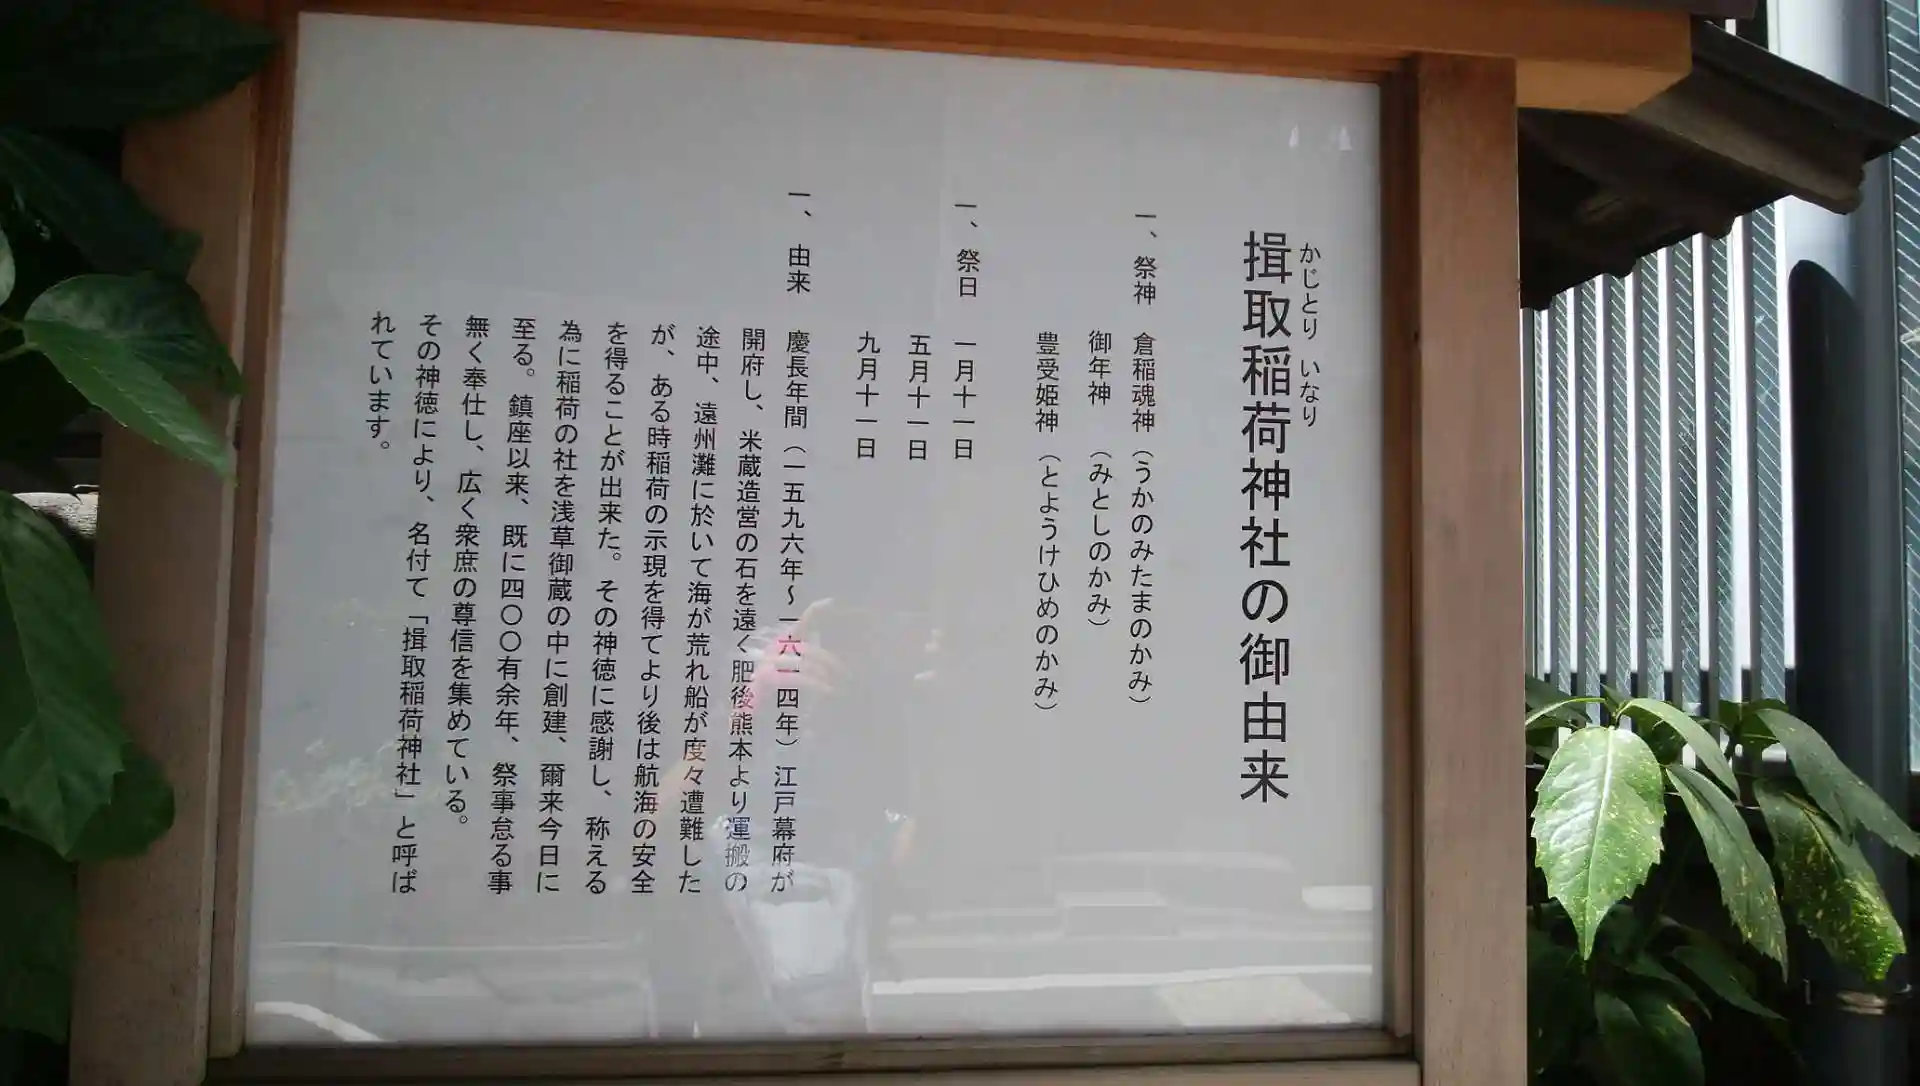 かじとり いなり
揖取稲荷神社の御由来
一、祭神 倉稲魂神（うかのみたまのかみ）
御年神 （みとしのかみ）
豊受姫神 （とようけひめのかみ）
一、祭日 一月十一日
五月十一日
九月十一日
一、由来 慶長年間（一五九六年～一六一四年）江戸幕府が
開府し、米蔵造営の石を遠く肥後熊本より運搬の
途中、遠州灘に於いて海が荒れ船が度々遭難した
が、ある時稲荷の示現を得てより後は航海の安全
を得ることが出来た。その神徳に感謝し、称える
為に稲荷の社を浅草御蔵の中に創建、爾来今日に
至る。鎮座以来、既に四〇〇有余年、祭事怠る事
無く奉仕し、広く衆庶の尊信を集めている。
その神徳により、名付て「揖取稲荷神社」と呼ば
れています。